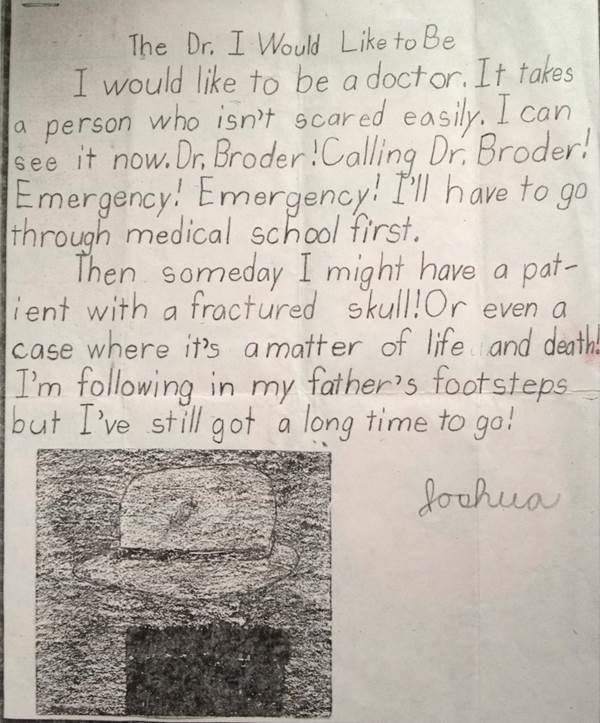 The Dr. I Would Like to Be
I would like to be a doctor. It takes
a person who isn't scared easily. I can
see it now. Dr. Broder! Calling Dr. Broder!
Emergency! Emergency! I'll have to go
through medical school first.
Then someday I might have a pat-
ient with a fractured skull! Or even a
case where it's a matter of life and death!
I'm following in my father's footsteps
but I've still got a long time to go!
Joshua